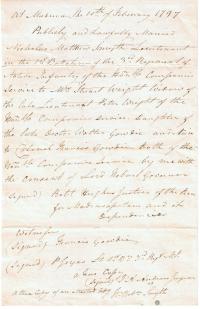 At Madura the 10th of February 1797
Publickly and Lawfully Married
Nicholas Matthew Smyth Lieutenant
in the 1st Battalion of the 3rd Regiment of
Native Infantry of the Honble Companies
Service to Mrs Stuart Wright Widow of
the late Lieutenant Wright of the
Honble Companies service Daughter of
the late Doctor Walter Gowdie and Niece
to Colonel Francis Gowdie Both of the
Honble Companies Service by me with
the consent of Lord Hobart Governor
Signed) Robt Hughes Justice of the Peace
for Madura and its
Dependencies
Witnesses
(Signed) Francis Gowdie
(Signed) 1st Bn 3rd Regt N.I.
a true Copy
(Signed)
A true Copy of an attested Copy Smyth